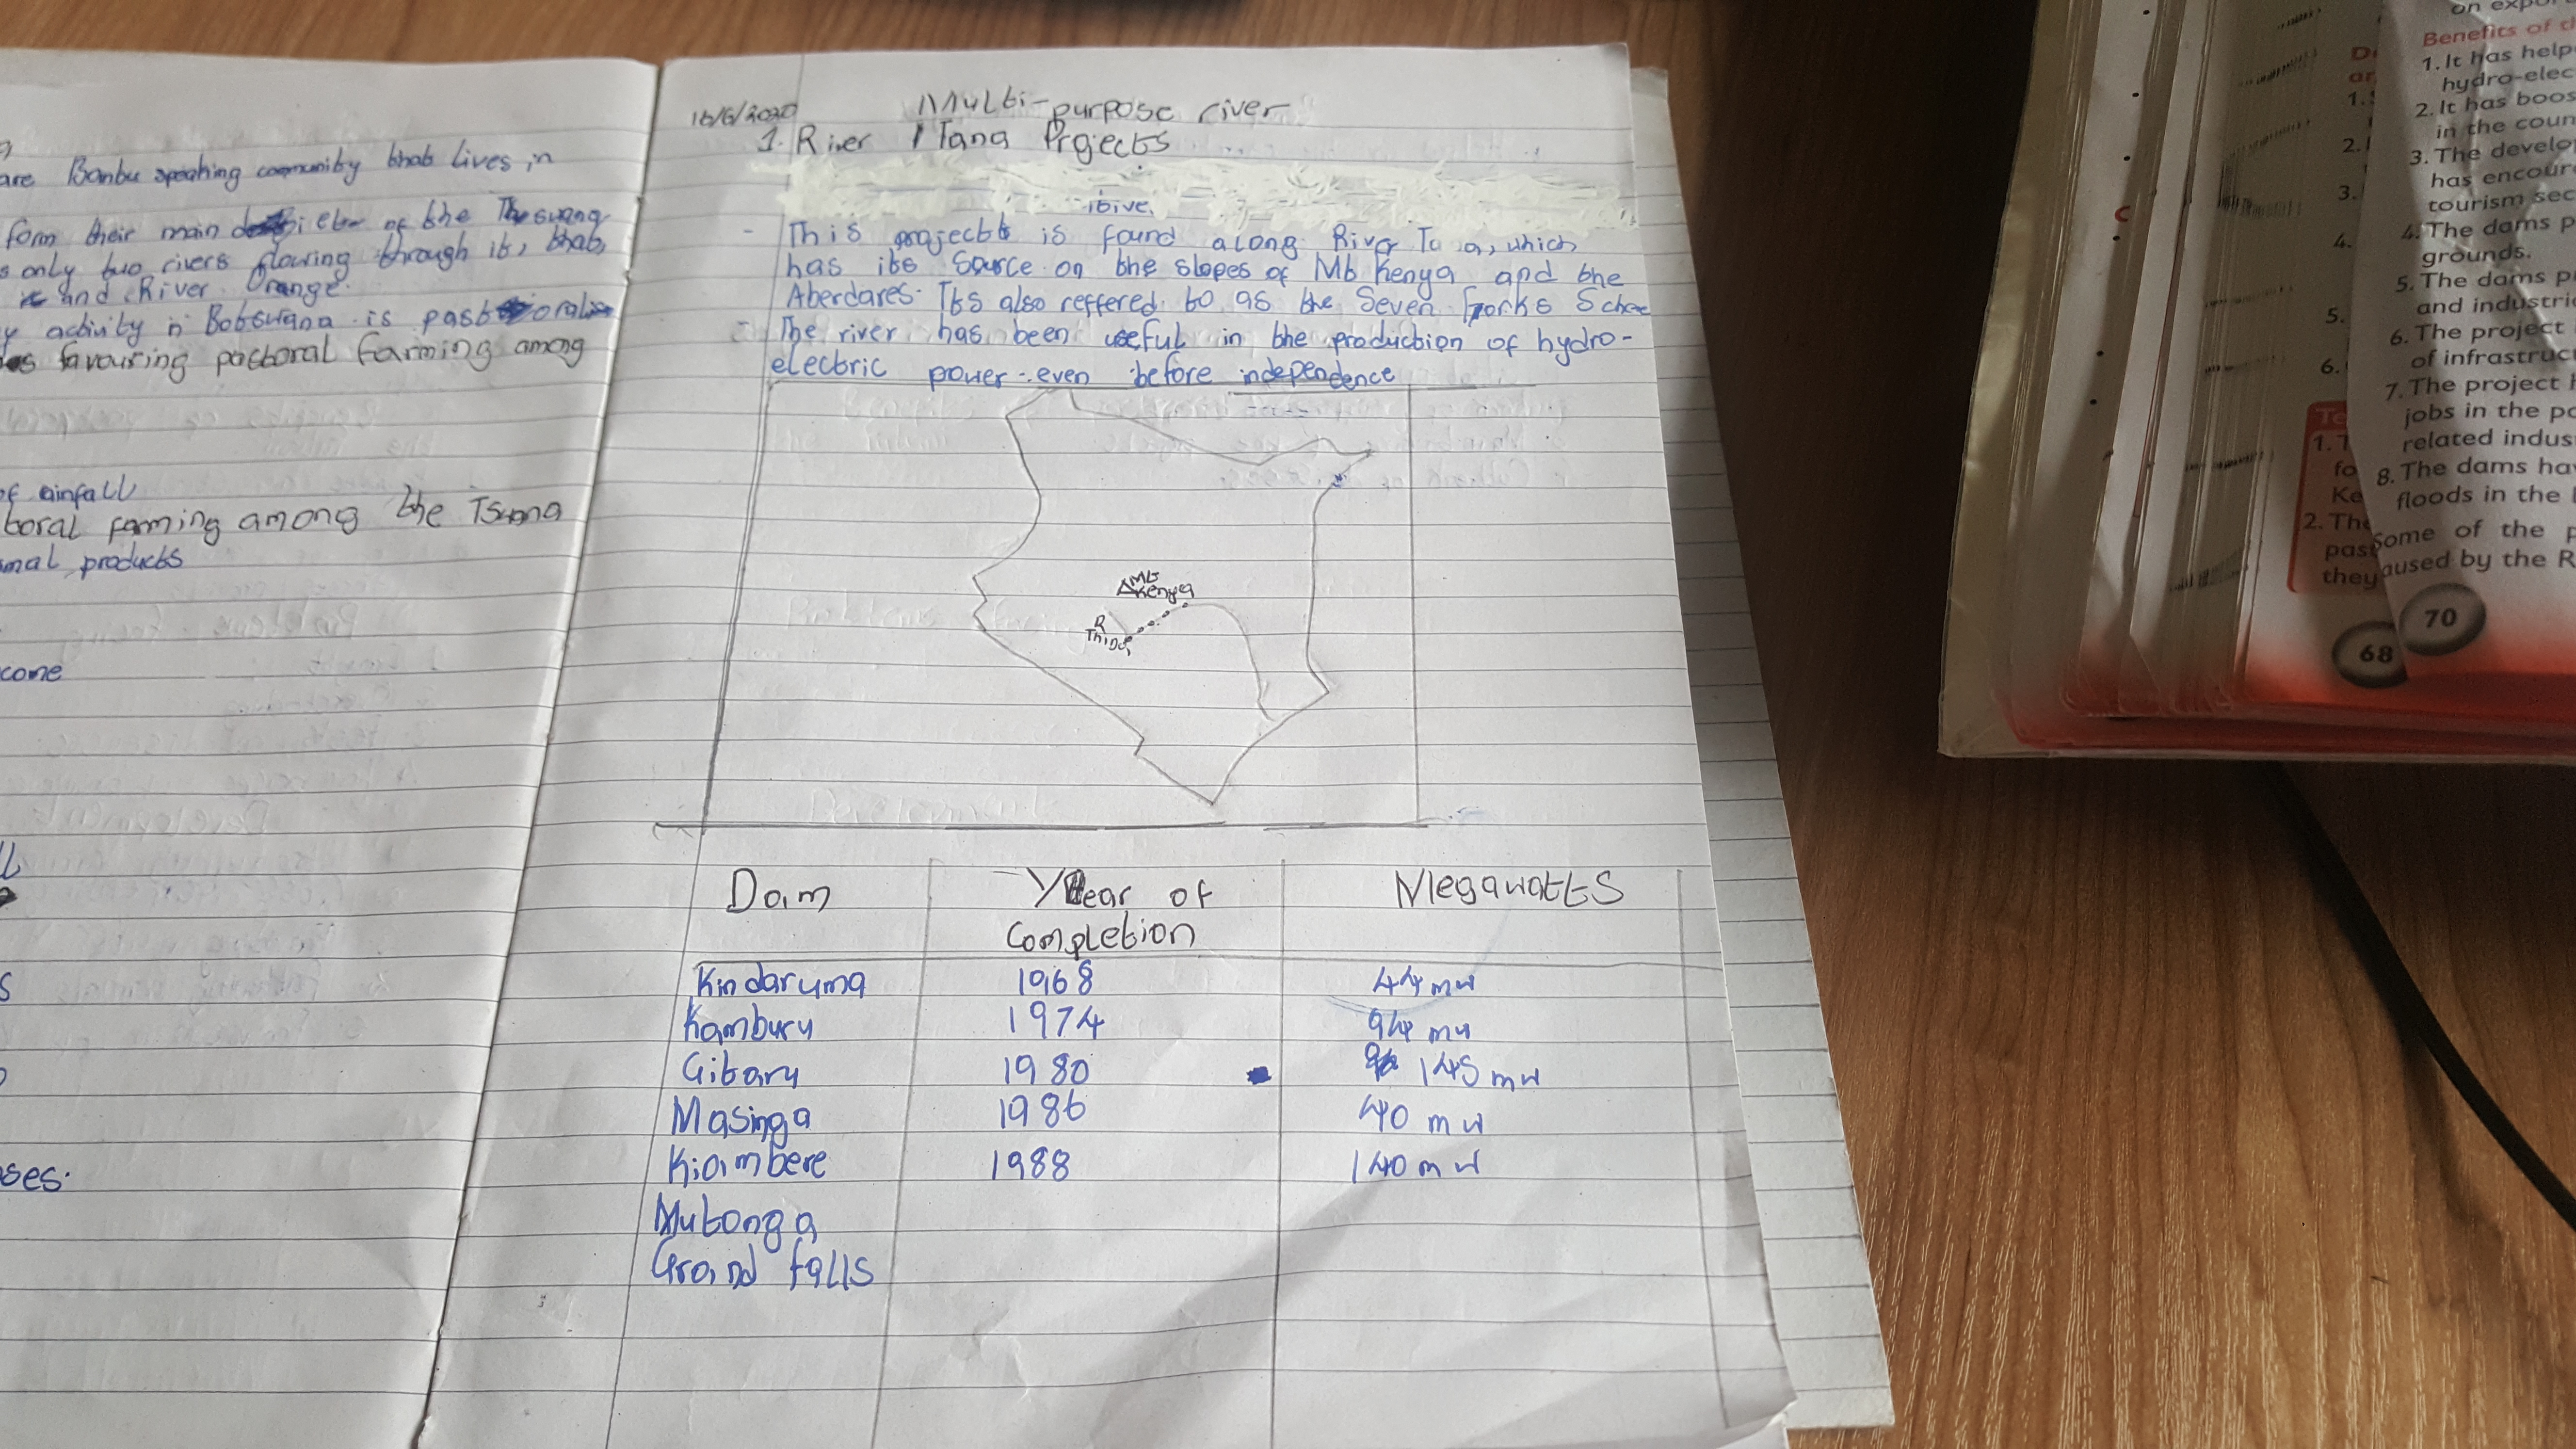 are Bantu speaking community that lives in
form their main diet of the Tswana
only two rivers flowing through it, that
and River Orange.
activity in Botswana is pastoralism
favouring pastoral farming among
of rainfall
toral farming among the Tswana
mal products
come
ases.
16/6/2020
Multi-purpose river
1. River Tana Projects
- This project is found along River Tana, which
has its source on the slopes of Mt Kenya and the
Aberdares. Its also reffered to as the Seven forks Scheme
- The river has been useful in the production of hydro-
electric power even before independence
Mt
Kenya
R
Thika
Dam
Year of
Completion
Megawatts
Kindaruma 1968 44 mw
Kamburu 1974 94 mw
Gitaru 1980 145 mw
Masinga 1986 40 mw
Kiambere 1988 140 mw
Mutonga
Grand falls
68
1. T
2. The
pas
they
4.
5.
6.
on exp
Benefits of d
1. It has help
hydro-elec
2. It has boo
in the cour
3. The develo
has encour
tourism sec
4. The dams p
grounds.
5. The dams p
and industri
6. The project
of infrastruc
7. The project h
jobs in the po
related indus
8. The dams hav
floods in the
Some of the p
aused by the R
70